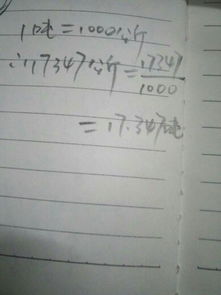 1吨=1000公斤
∴17347公斤=17347/1000
=17.347吨